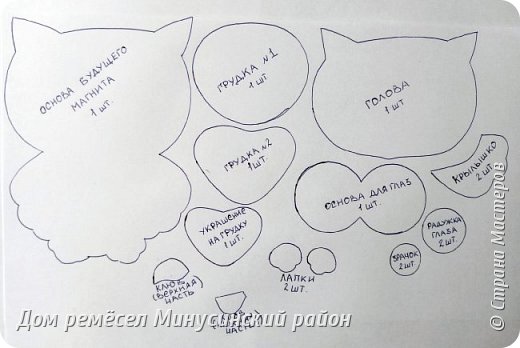 ОСНОВА БУДУЩЕГО
МАГНИТА
1 ШТ.
ГРУДКА №1
1 ШТ
ГОЛОВА
1 ШТ
ГРУДКА №2
1 ШТ.
КРЫЛЫШКО
2 ШТ.
ОСНОВА ДЛЯ ГЛАЗ
1 ШТ.
УКРАШЕНИЕ
НА ГРУДКУ
1 ШТ.
РАДУЖКА
ГЛАЗА
2 ШТ.
ЗРАЧОК
2 ШТ.
КЛЮВ
(ВЕРХНЯЯ)
ЧАСТЬ
ЛАПКИ
2 ШТ.
КЛЮВ
ЧАСТЬ
Дом ремёсел Минусинский район
© Страна Мастеров